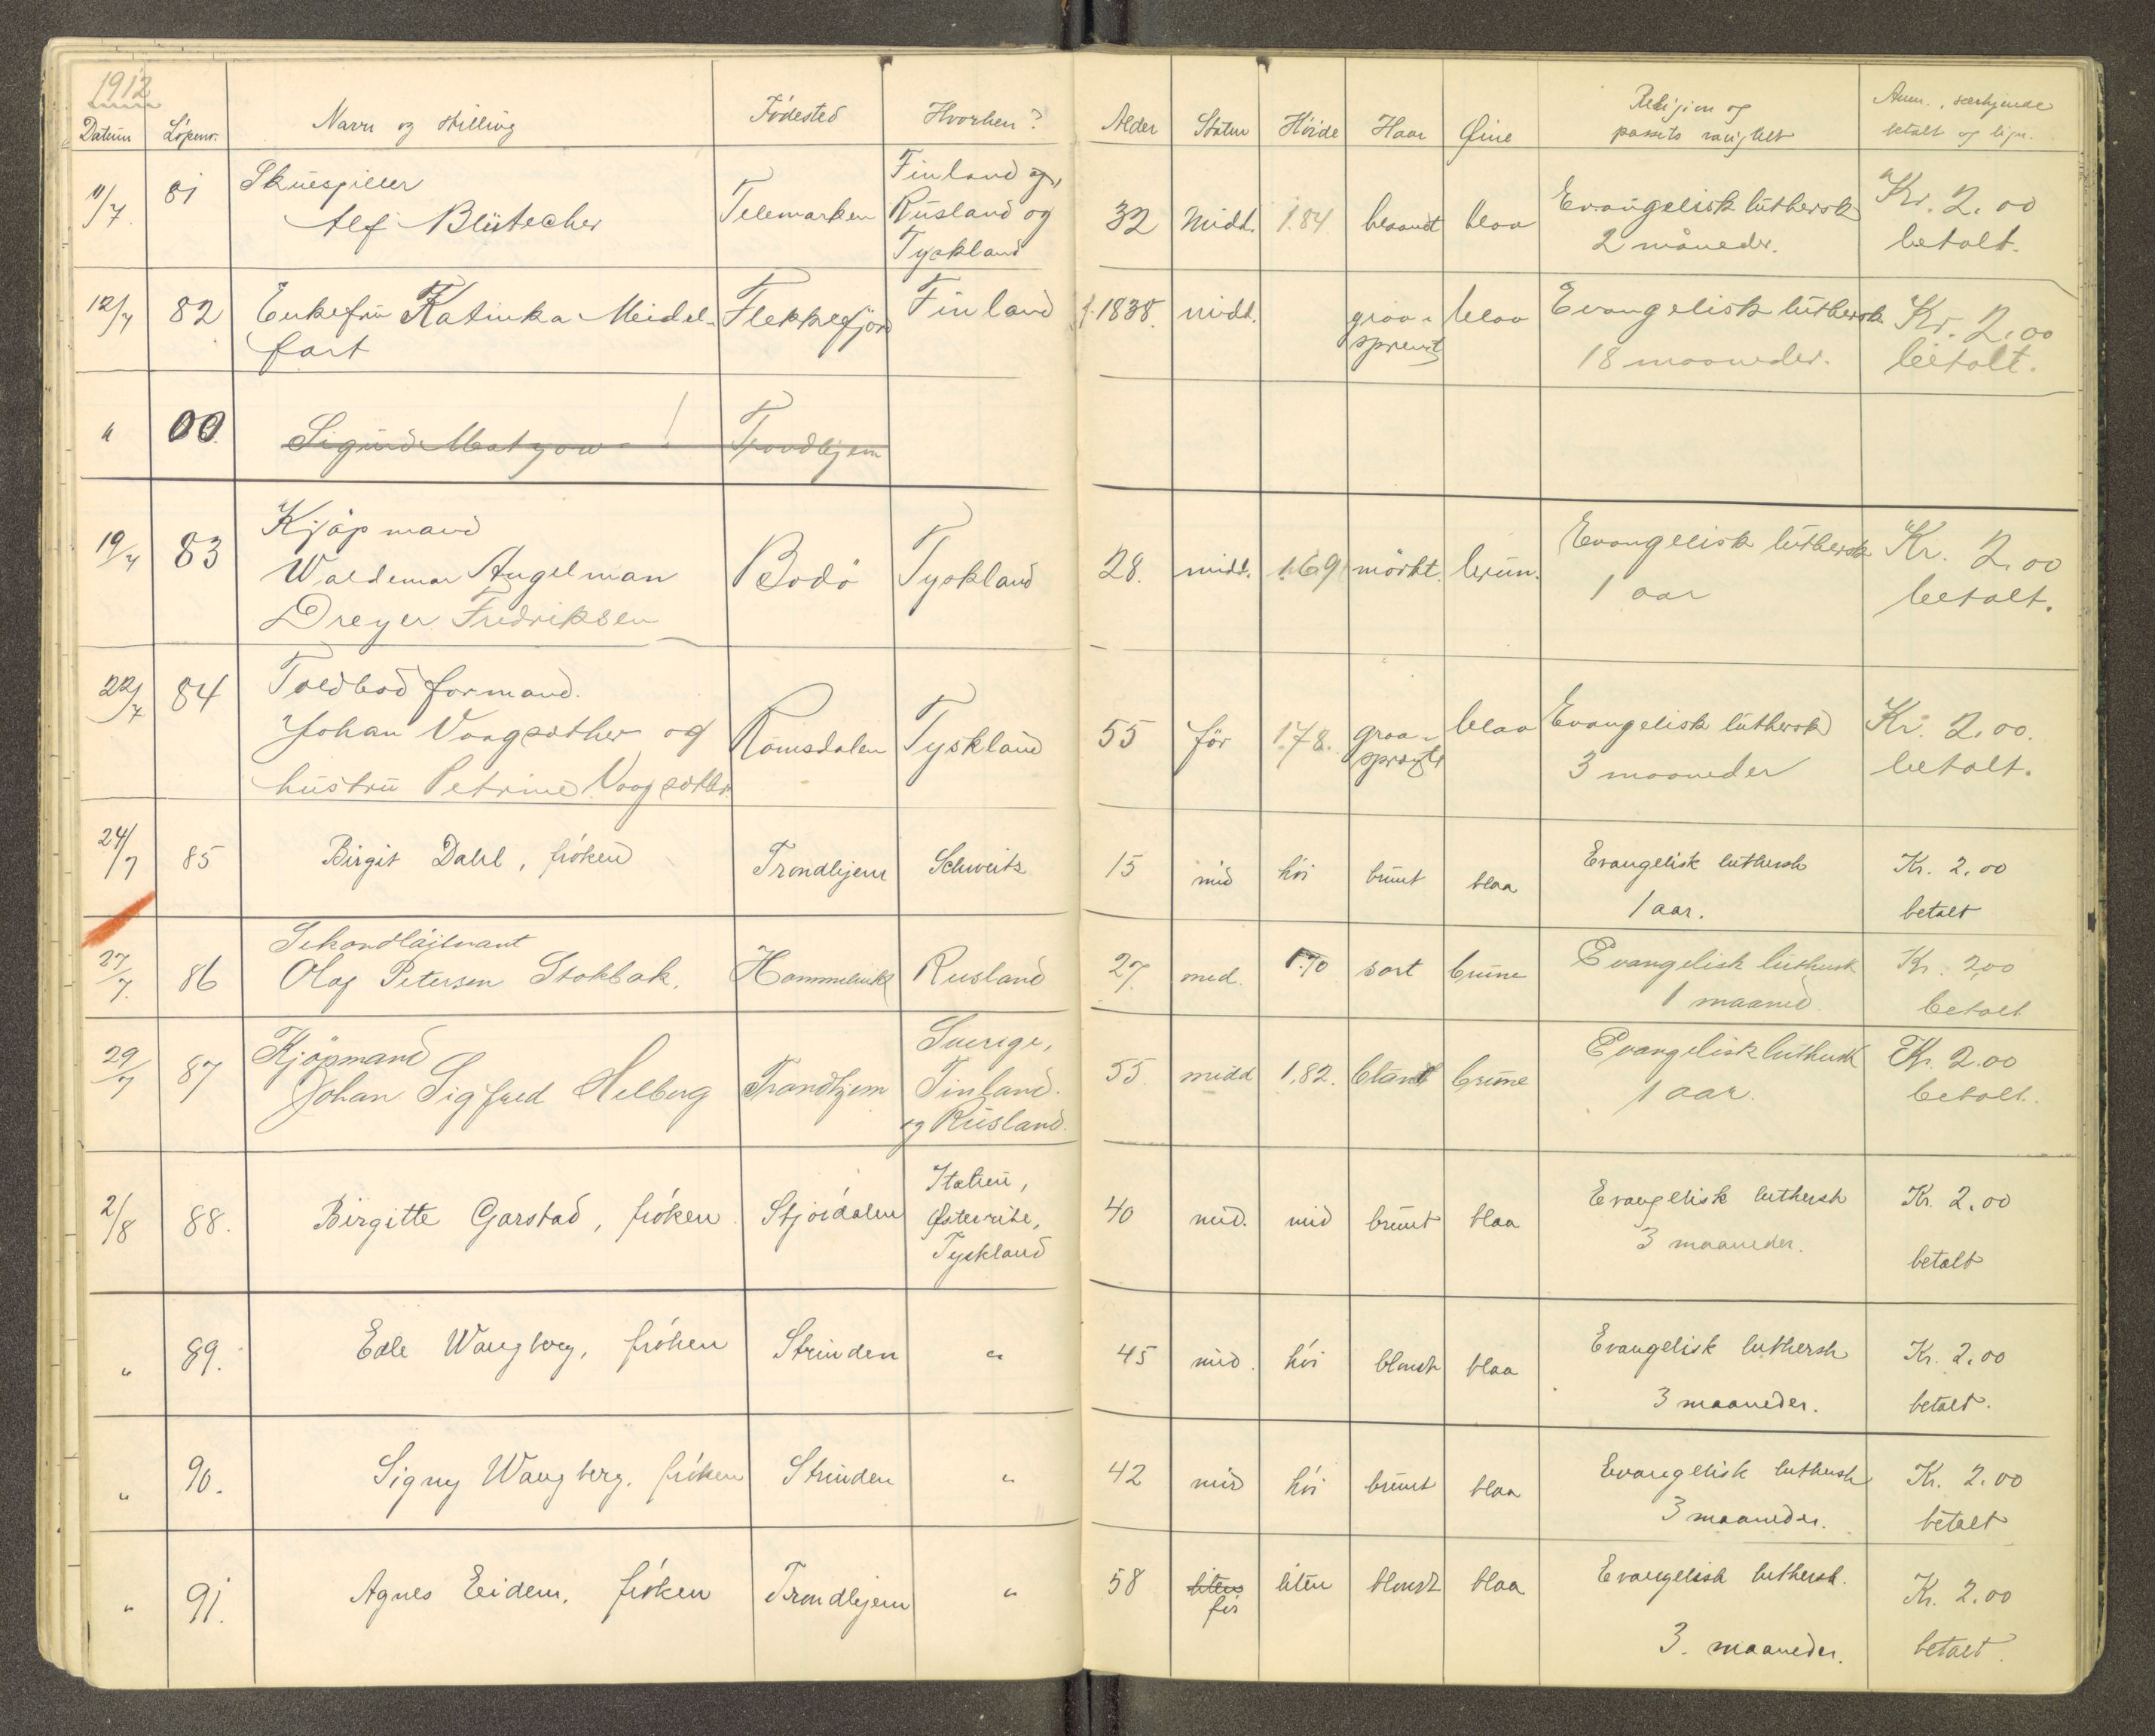 1912
Datum Löpenr. Navn og stilling Födested Hvorhen? Alder Statur Höide Haar Øine Religion og passets varighet Anm., særkjende betalt og lign.
11/7 81 Skuespiller
Alf Blütecher Telemarken Finland og, Rusland og Tyskland 32 Midd. 1.84 blaandt blaa Evangelisk luthersk 2 måneder. Kr. 2.00 betalt.
12/7 82 Enkefru Katinka Meidel-
fart Flekkefjord Finland f. 1838. midd. graa-sprengt blaa Evangelisk luthersk 18 maaneder. Kr. 2.00 betalt.
" 00. Sigurd Trondhjem
19/7 83 Kjöpmand
Waldemar Angelman
Dreyer Fredriksen Bodö Tyskland 28. midd. 1.69 mörkt. brun. Evangelisk luthersk 1 aar Kr. 2.00 betalt.
22/7 84 Toldbodformand.
Johan Vaagsæther og
hustru Petrine Vaagsæther Romsdalen Tyskland 55 för 1.78. graa-sprengt blaa Evangelisk luthersk 3 maaneder Kr. 2.00. betalt.
24/7 85 Birgit Dahl, fröken Trondhjem Schweitz 15 mid höi brunt blaa Evangelisk luthersk 1 aar. Kr. 2.00 betalt
27/7. 86 Sekondløjtnant
Olaf Petersen Stokbak. Rusland 27. med. 1.70 sort brune Evangelisk luthersk 1 maaned. Kr. 2,00 betalt
29/7 87 Kjöpmand
Johan Sigfred Helberg Trondhjem Sverige, Finland. og Rusland. 55. midd 1,82. blandt brune Evangelisk luthersk 1 aar. Kr. 2.00 betalt.
2/8 88. Birgitte Garstad, fröken Stjördalen Italien, Østerrike, Tyskland 40 mid. mid brunt blaa Evangelisk luthersk 3 maaneder. Kr. 2.00 betalt
" 89. Edle Wangberg, fröken Strinden " 45 mid. höi blondt blaa Evangelisk luthersk 3 maaneder. Kr. 2.00 betalt.
" 90. Signy Wangberg. fröken Strinden " 42 mid höi brunt blaa Evangelisk luthersk 3 maaneder. Kr. 2.00 betalt
" 91. Agnes Eidem, fröken Trondhjem " 58 liten för liten blondt blaa Evangelisk luthersk. 3. maaneder. Kr. 2.00 betalt.